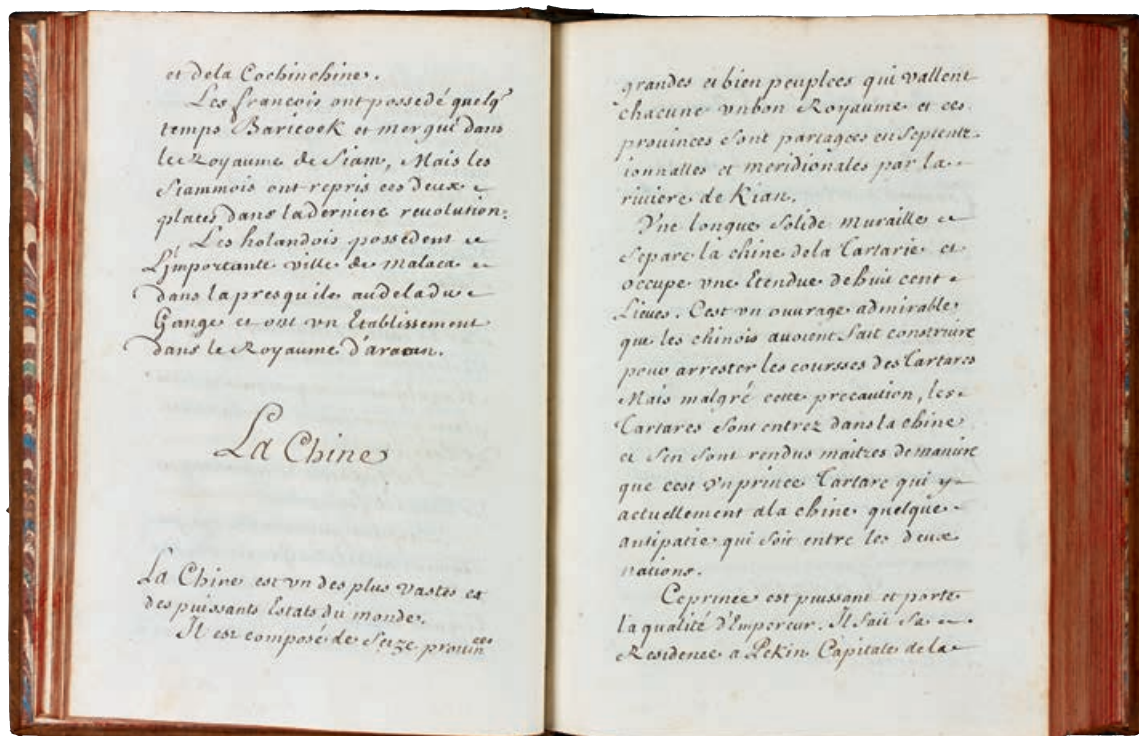 et dela Cochinchine.
Les francois ont possedé quelq
temps Bancock et mergui dans
le Royaume de Siam, Mais les
Siammois ont repris ces deux
places dans la derniere revolution.
Les holandois possedent
L'importante ville de malaca
dans la presqu'ile audeladu
Gange et ont vn Etablissement
dans le Royaume d'aracan.
La Chine
La Chine est vn des plus vastes et
des puissants Estats du monde.
Il est composé de Seize prouinces
grandes et bien peuplees qui vallent
chacune vn bon Royaume et ces
prouinces Sont partagées en Septent
ionnalles et meridionales par la
riuiere de Kian.
Vne longue Solide muraille
Separe la chine dela Tartarie et
occupe vne Etendue dehuit cent
Lieues. C'est vn ouurage admirable
que les chinois auoient fait construire
pour arrester les coursses des Tartares
Mais malgré cette precaution, les
Tartares Sont entrez dans la chine
et S'en Sont rendus maitres demaniere
que cest vn prince Tartare qui y
actuellement ala chine quelque
antipatie qui Soit entre les deux
nations.
Ceprince est puissant et porte
la qualité d'Empereur. Il fait Sa
Residence a Pekin Capitale dela